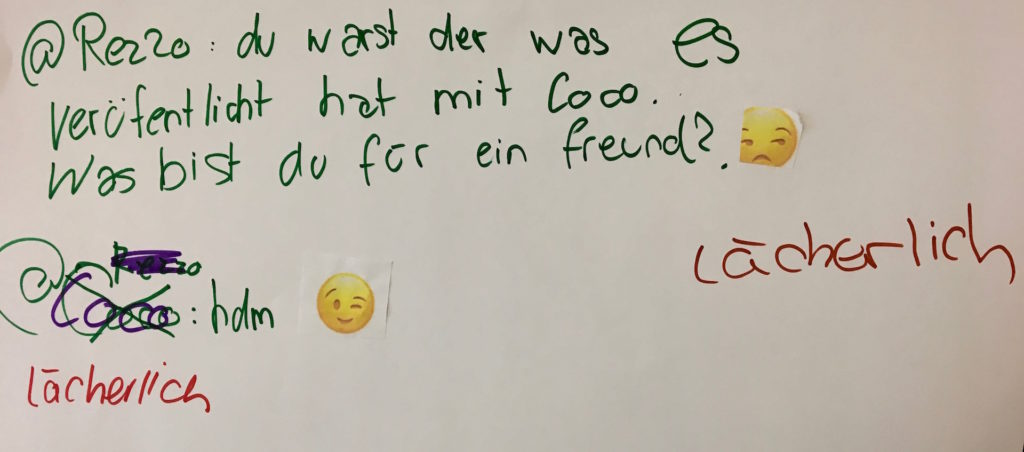 @Rezzo: du warst der was es
veröfentlicht hat mit Coco.
Was bist du für ein freund?.
lächerlich
Rezzo
@Coco: hdm
lächerlich